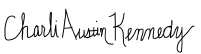 Charli Austin Kennedy